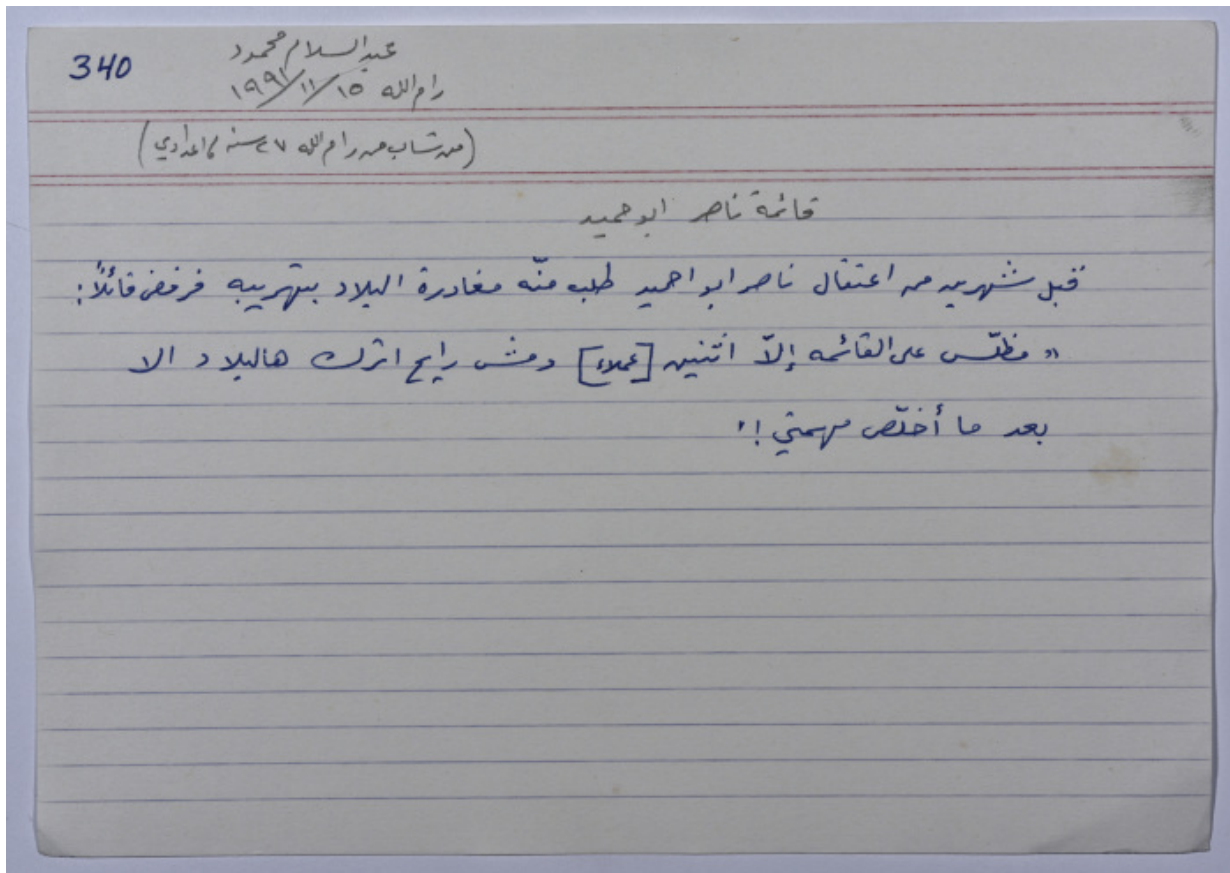 340
عبد السلام محمود
رام الله ١٥/١١/١٩٩١
(من شاب من رام الله ٢٧ سنة اعدادي)
قائمة ناصر ابو حميد
قبل شهرين من اعتقال ناصر ابو احميد طلب منّه مغادرة البلاد بتهريبه فرفض قائلاً:
"مظلّش على القائمه إلاّ اثنين [عملاء] ومش رايح اترك هالبلاد الا
بعد ما أخلّص مهمتي!"